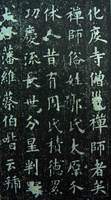 化度寺僧邕禪師者矣
禪師俗姓郭氏太原介
休人昔有周積德累
功慶流長世分星判
大藩維蔡伯喈云虢